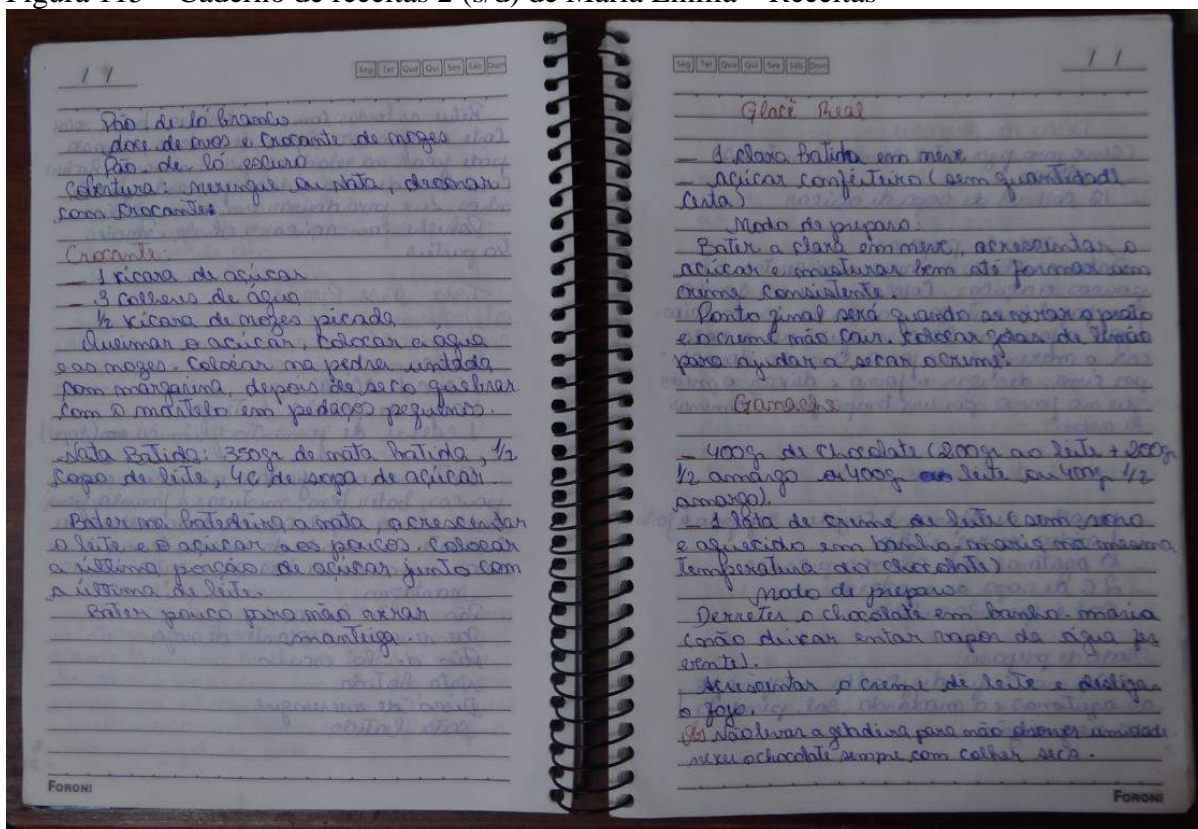 Figura 113 – Caderno de receitas 2 (s/d) de Maria Emília – Receitas
/ /
Seg Ter Qua Qui Sex Sáb Dom
Pão de ló branco
doce de ovos e crocante de nozes
Pão de ló escuro
Cobertura: merengue ou nata, decorar
com crocantes
Crocante:
– 1 xícara de açúcar
– 3 colheres de água
½ xícara de nozes picada
Queimar o açúcar, colocar a água
e as nozes. Colocar na pedra untada
com margarina, depois de seco quebrar
com o martelo em pedaços pequenos.
Nata Batida: 350gr de nata batida, 1/2
copo de leite, 4 c de sopa de açúcar.
Bater na batedeira a nata, acrescentar
o leite e o açúcar aos poucos. Colocar
a última porção de açúcar junto com
a última de leite.
Bater pouco para não virar
manteiga.
FORONI
Seg Ter Qua Qui Sex Sáb Dom
/ /
Glacê Real
– 1 clara batida em neve
– Açúcar confeiteiro (sem quantidade
certa)
Modo de preparo:
Bater a clara em neve, acrescentar o
açúcar e misturar bem até formar um
creme consistente.
Ponto final será quando se virar o prato
e o creme não cair. Colocar gotas de limão
para ajudar a secar o creme.
Ganache
– 400g de chocolate (200gr ao leite + 200g
1/2 amargo ou 400g ao leite ou 400g 1/2
amargo).
– 1 lata de creme de leite (sem soro
e aquecido em banho maria na mesma
temperatura do chocolate)
Modo de preparo
Derreter o chocolate em banho-maria
(não deixar entrar vapor da água
Acrescentar o creme de leite e desligar
o fogo.
Obs Não levar a geladeira para não umidade
mexer o chocolate sempre com colher seca.
FORONI